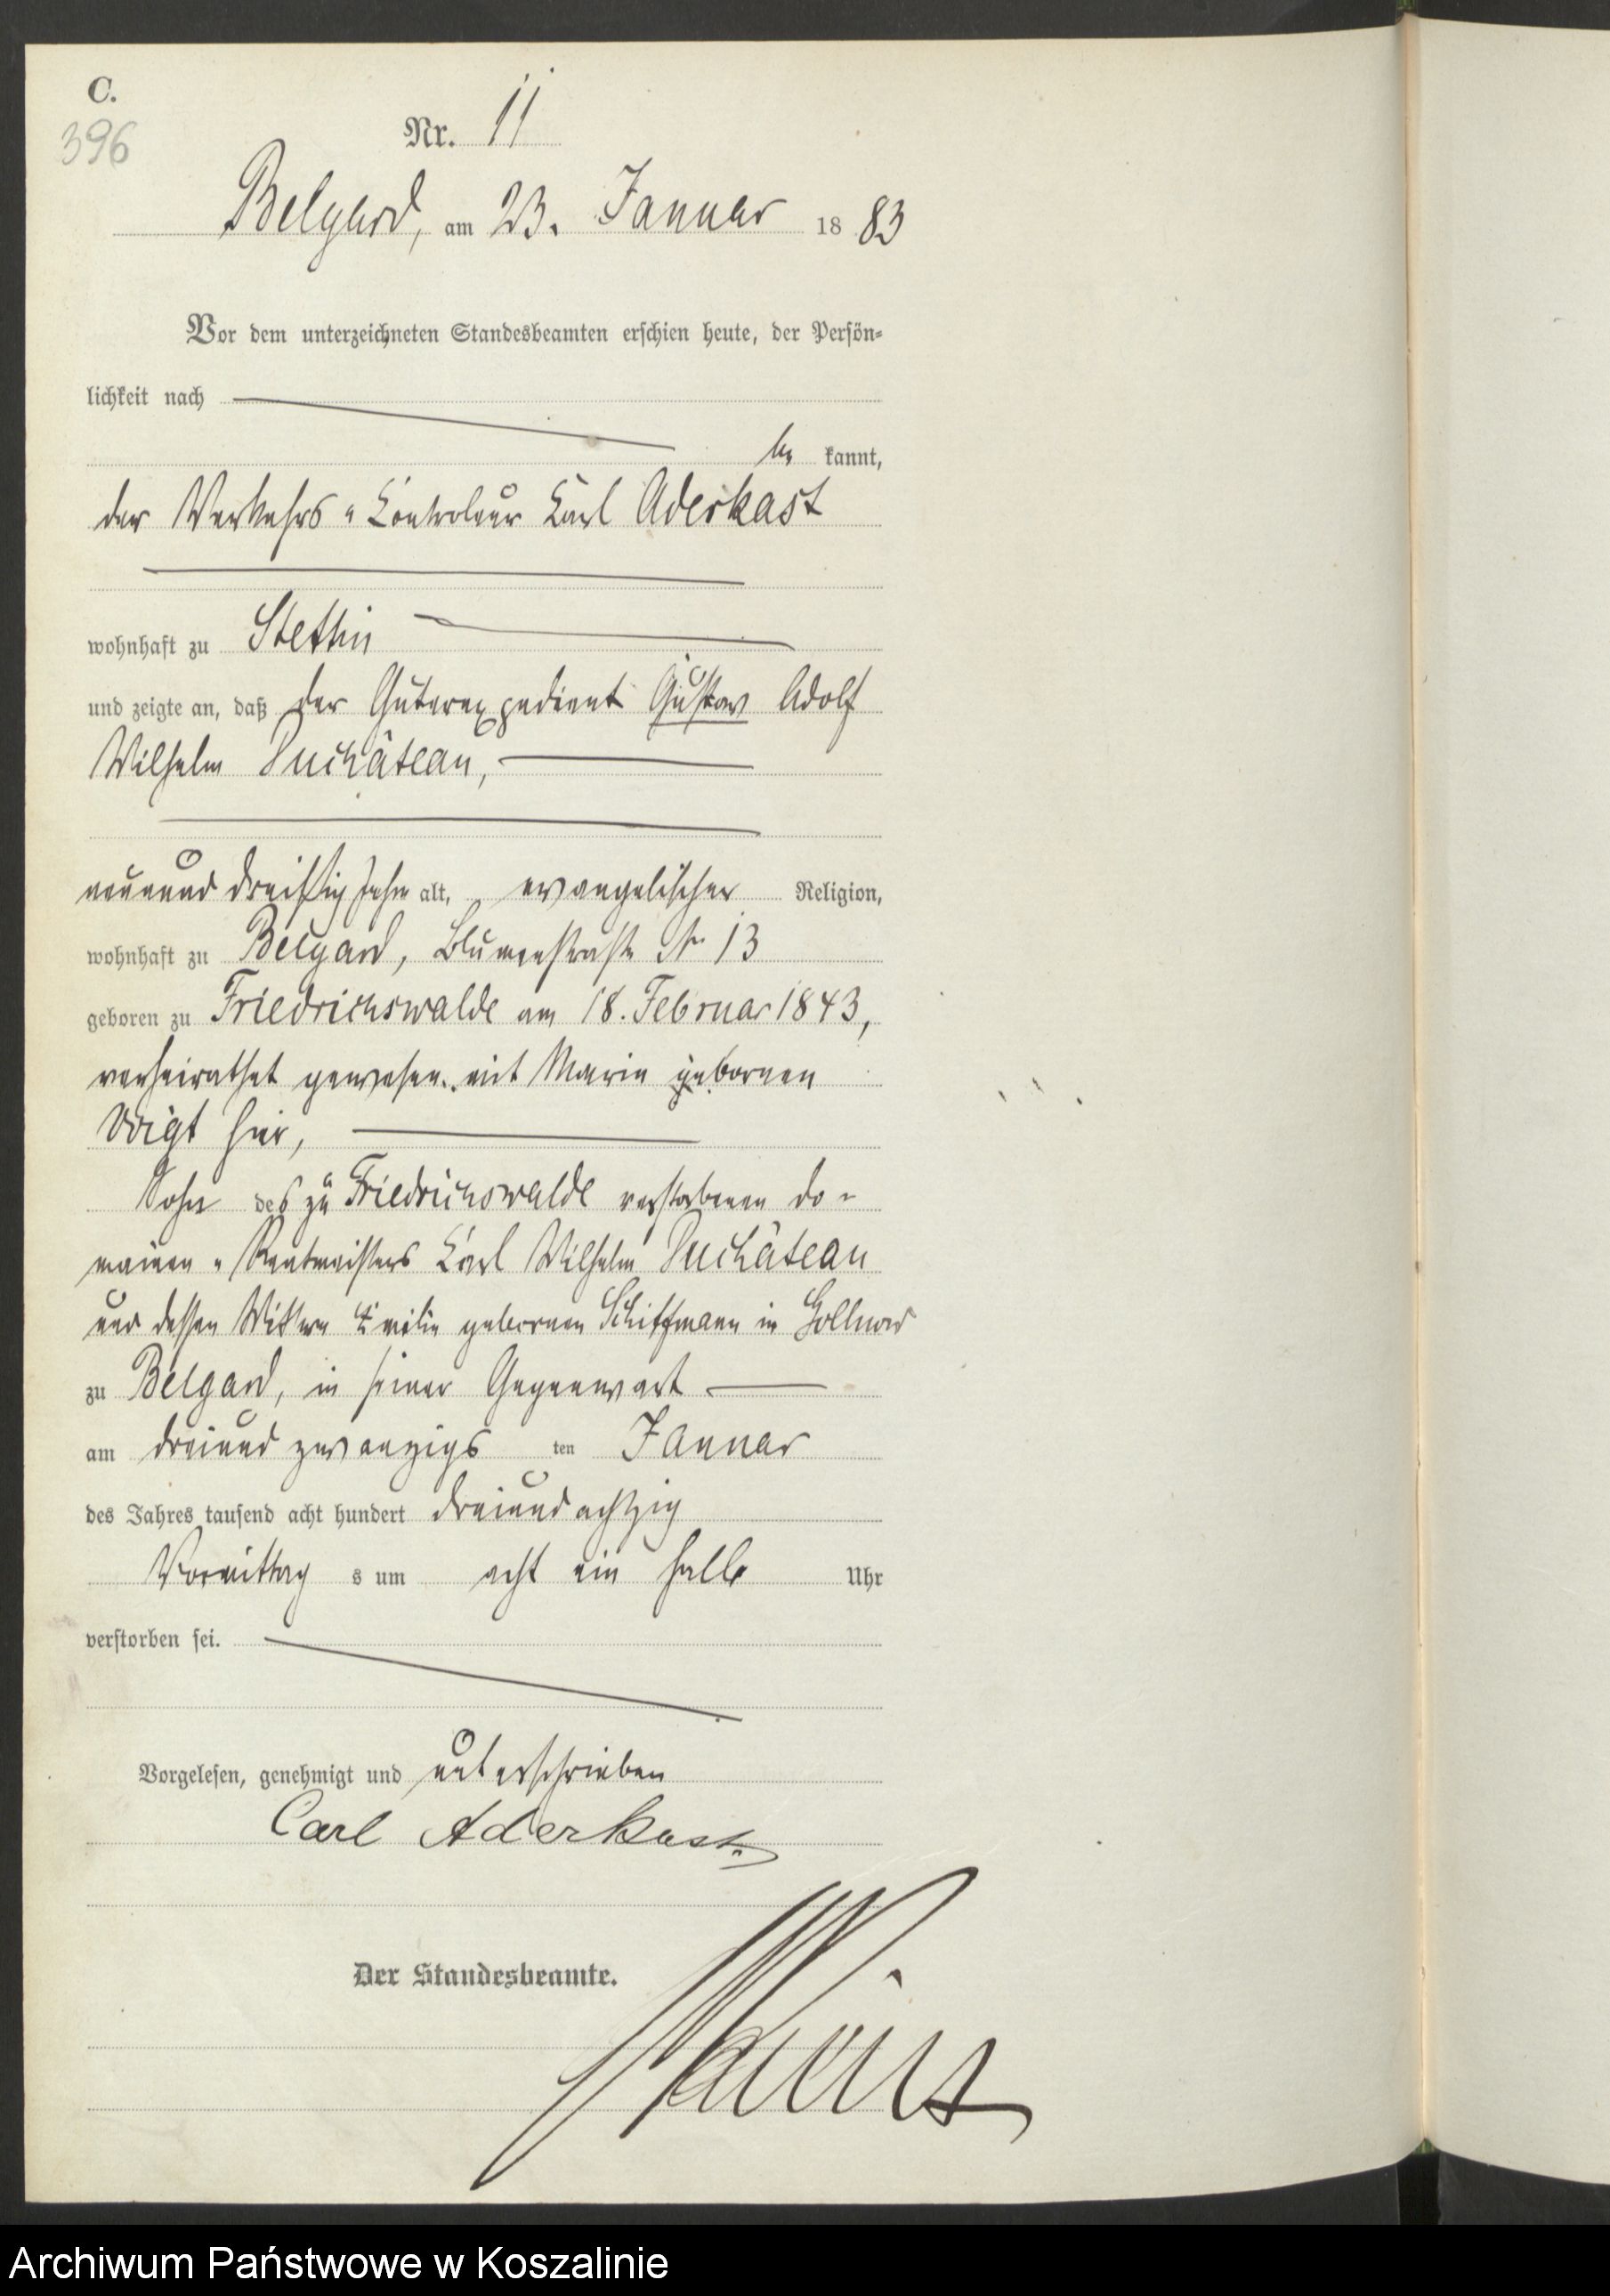 C.
396
Nr. 11
Belgard, am 23. Januar 1883
Vor dem unterzeichneten Standesbeamten erschien heute, der Persön-
lichkeit nach
be kannt,
der Verkehrs-Controleur Carl Aderkast
wohnhaft zu Stettin
und zeigte an, daß der Güterexpedient Gustav Adolf
Wilhelm Duchâteau,
neununddreißig Jahre alt, evangelischer Religion,
wohnhaft zu Belgard, Blumenstraße Nr 13
geboren zu Friedrichswalde am 18. Februar 1843,
verheirathet gewesen mit Marie gebornen
Voigt hier,
Sohn des zu Friedrichswalde verstorbenen Do-
mainen-Rentmeisters Carl Wilhelm Duchâteau
und dessen Wittwe Emilie gebornen Schiffmann in Gollnow
zu Belgard, in seiner Gegenwart
am dreiundzwanzigs ten Januar
des Jahres tausend acht hundert dreiundachtzig
Vormittag s um acht ein halb Uhr
verstorben sei.
Vorgelesen, genehmigt und unterschrieben
Carl Aderkast
Der Standesbeamte.
Archiwum Państwowe w Koszalinie